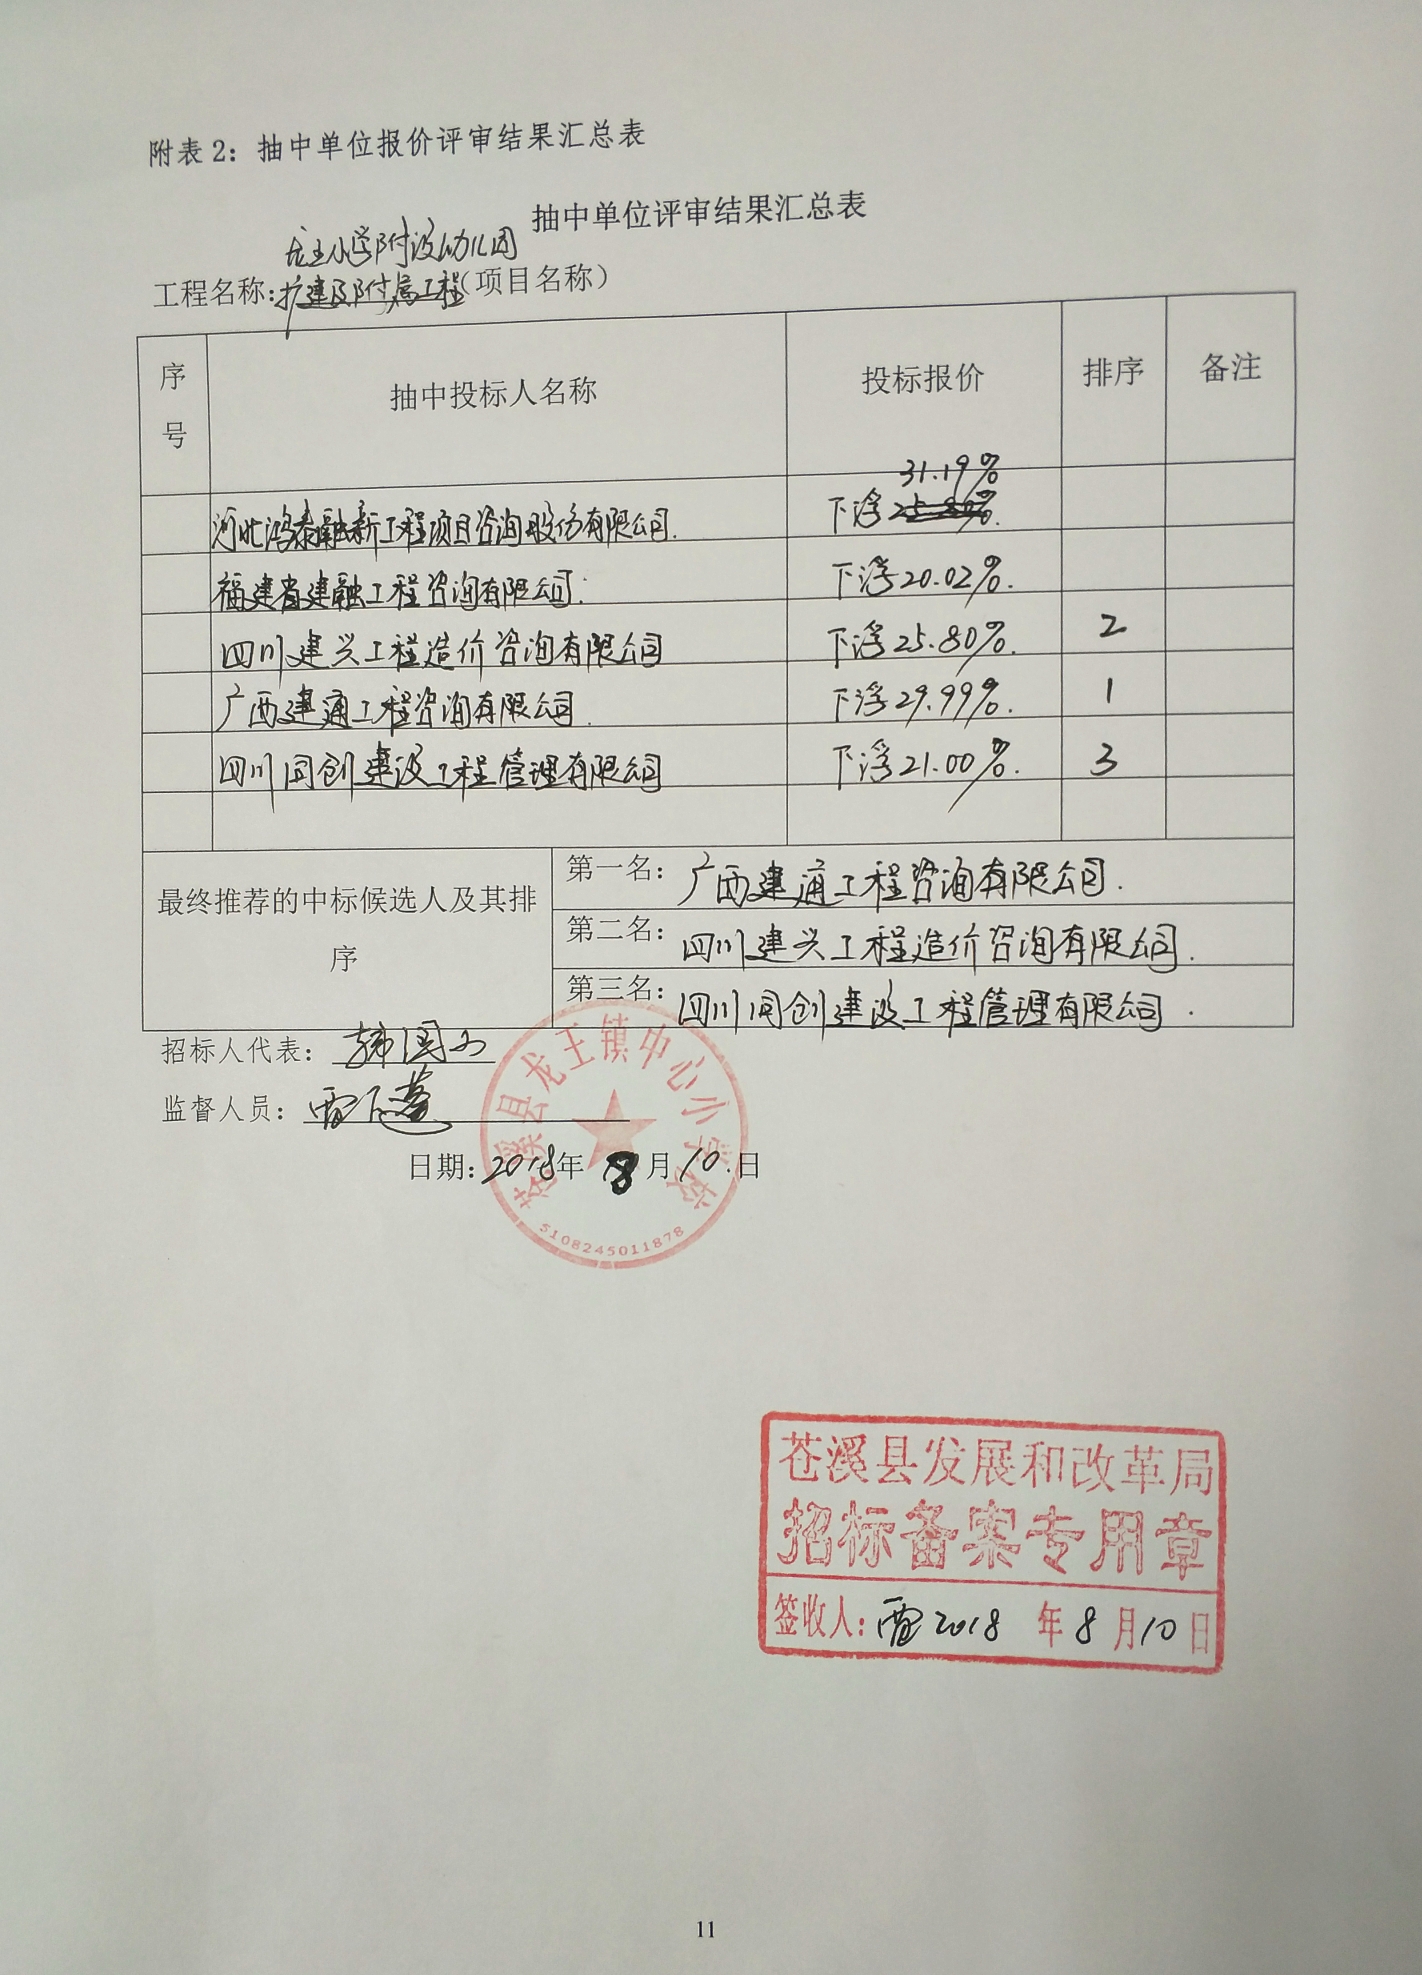 附表 2：抽中单位报价评审结果汇总表
抽中单位评审结果汇总表
龙王小学附设幼儿园
工程名称：扩建及附属工程（项目名称）
序号 抽中投标人名称 投标报价 排序 备注
31.19%
河北鸿泰融新工程项目咨询股份有限公司. 下浮
福建省建融工程咨询有限公司. 下浮20.02%.
四川建兴工程造价咨询有限公司 下浮25.80%. 2
广西建通工程咨询有限公司. 下浮29.99%. 1
四川同创建设工程管理有限公司 下浮21.00%. 3
最终推荐的中标候选人及其排序
第一名：广西建通工程咨询有限公司.
第二名：四川建兴工程造价咨询有限公司.
第三名：四川同创建设工程管理有限公司.
招标人代表：
监督人员：
日期：2018年 8月10.日
苍溪县龙王镇中心小学校
5108245011878
苍溪县发展和改革局
招标备案专用章
签收人：雷2018 年8月10日
11